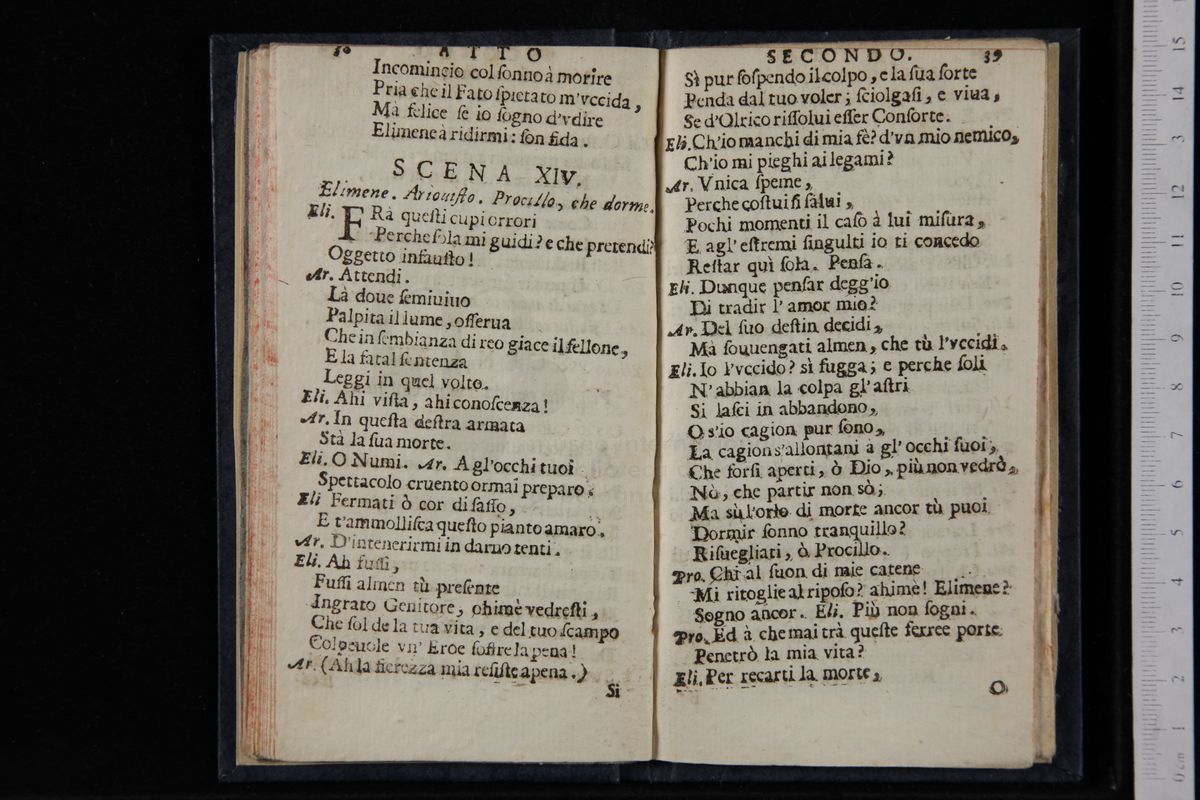 ATTO
Incomincio col ſonno à morire
Pria che il Fato ſpietato m'vccida,
Mà felice ſe io ſogno d'vdire
Elimene à ridirmi: ſon fida.
SCENA XIV.
Elimene. Ariouiſto. Procillo, che dorme.
Eli. FRà queſti cupi orrori
Perche ſola mi guidi? e che pretendi?
Oggetto infauſto!
Ar. Attendi.
Là doue ſemiuiuo
Palpita il lume, oſſerua
Che in ſembianza di reo giace il fellone,
E la fatal ſentenza
Leggi in quel volto.
Eli. Ahi viſta, ahi conoſcenza!
Ar. In queſta deſtra armata
Stà la ſua morte.
Eli. O Numi. Ar. A gl'occhi tuoi
Spettacolo cruento ormai preparo.
Eli Fermati ò cor di ſaſſo,
E t'ammolliſca queſto pianto amaro.
Ar. D'intenerirmi in darno tenti.
Eli. Ah fuſſi,
Fuſſi almen tù preſente
Ingrato Genitore, ohimè vedreſti,
Che ſol de la tua vita, e del tuo ſcampo
Colpeuole vn' Eroe ſoffre la pena!
Ar. (Ah la fierezza mia reſiſte apena.)
Si
SECONDO. 39
Sì pur ſoſpendo il colpo, e la ſua ſorte
Penda dal tuo voler; ſciolgaſi, e viua,
Se d'Olrico riſſolui eſſer Conſorte.
Eli. Ch'io manchi di mia fè? d'vn mio nemico,
Ch'io mi pieghi ai legami?
Ar. Vnica ſpeme,
Perche coſtui ſi ſalui,
Pochi momenti il caſo à lui miſura,
E agl' eſtremi ſingulti io ti concedo
Reſtar quì ſola. Penſa.
Eli. Dunque penſar degg'io
Di tradir l' amor mio?
Ar. Del ſuo deſtin decidi,
Mà ſouuengati almen, che tù l'vccidi.
Eli. Io l'vccido? sì fugga; e perche ſoli
N'abbian la colpa gl'aſtri
Si laſci in abbandono,
O s'io cagion pur ſono,
La cagion s'allontani a gl' occhi ſuoi,
Che forſi aperti, ò Dio, più non vedrò,
Nò, che partir non sò;
Ma sù l'orlo di morte ancor tù puoi
Dormir ſonno tranquillo?
Riſuegliati, ò Procillo.
Pro. Chi al ſuon di mie catene
Mi ritoglie al ripoſo? ahimè! Elimene?
Sogno ancor. Eli. Più non ſogni.
Pro. Ed à che mai trà queſte ferree porte
Penetrò la mia vita?
Eli. Per recarti la morte,
O